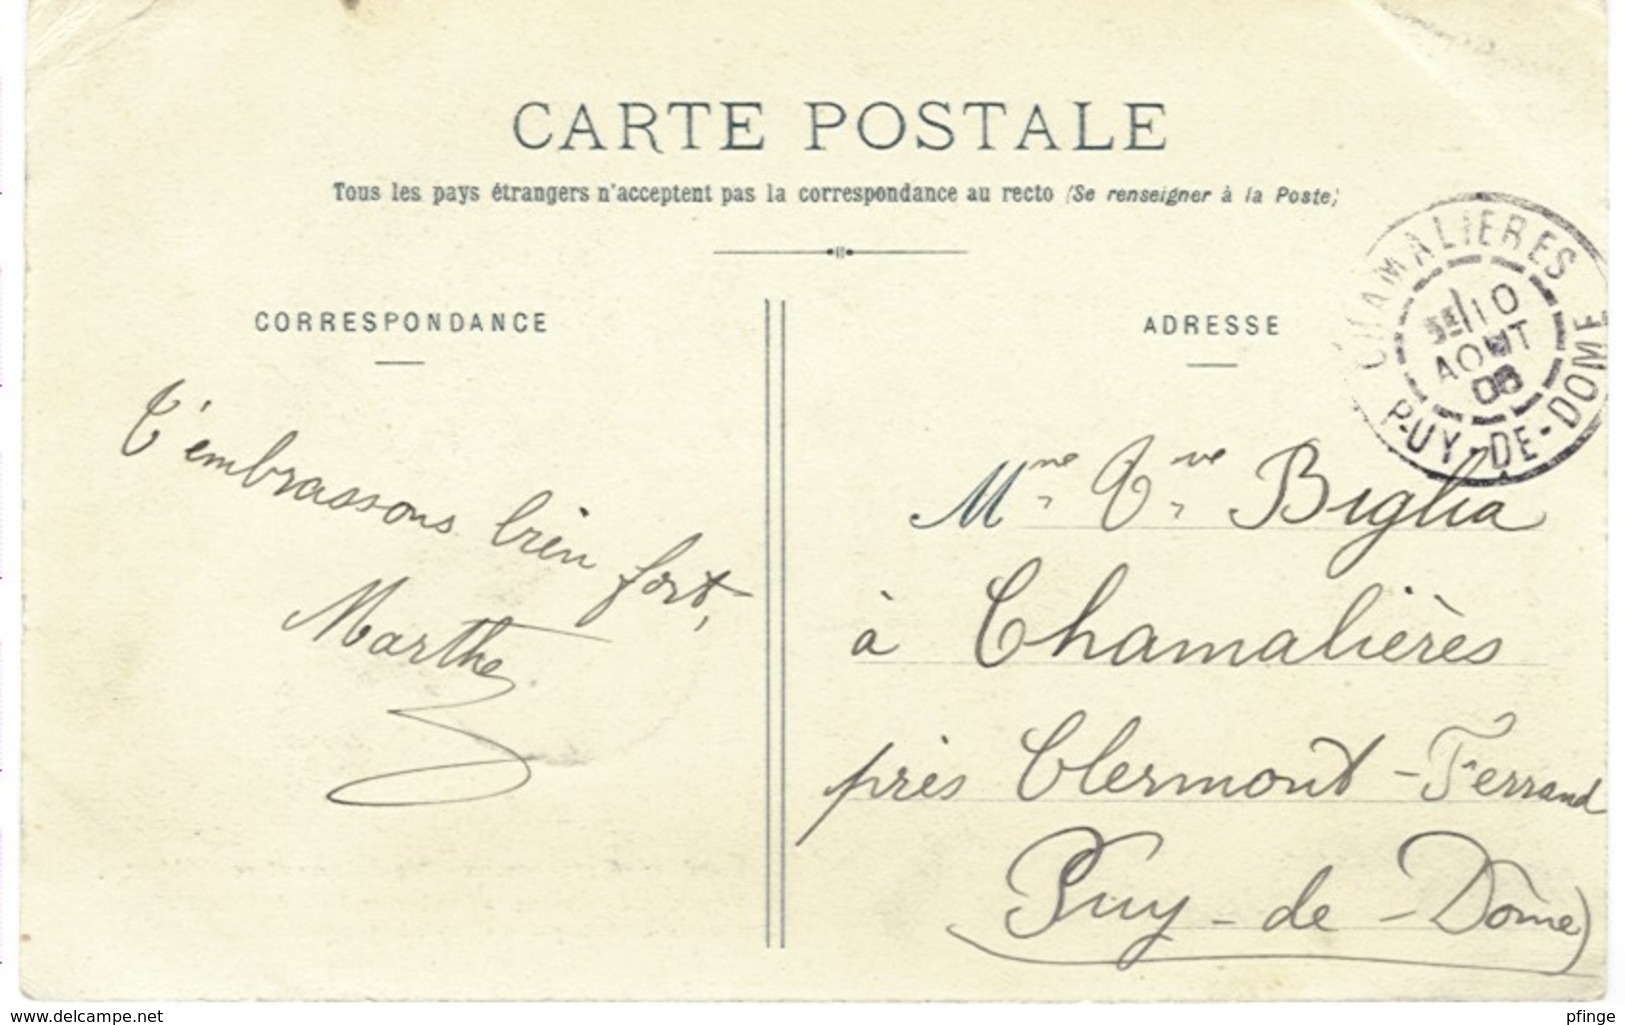 CARTE POSTALE
Tous les pays étrangers n'acceptent pas la correspondance au recto (Se renseigner à la Poste)
CORRESPONDANCE
ADRESSE
CHAMALIERES
10
AOUT
PUY-DE-DOME
T'embrassons bien fort,
Marthe
Mme Vve Biglia
à Chamalières
près Clermont-Ferrand
Puy-de-Dôme)
www.delcampe.net
pfinge